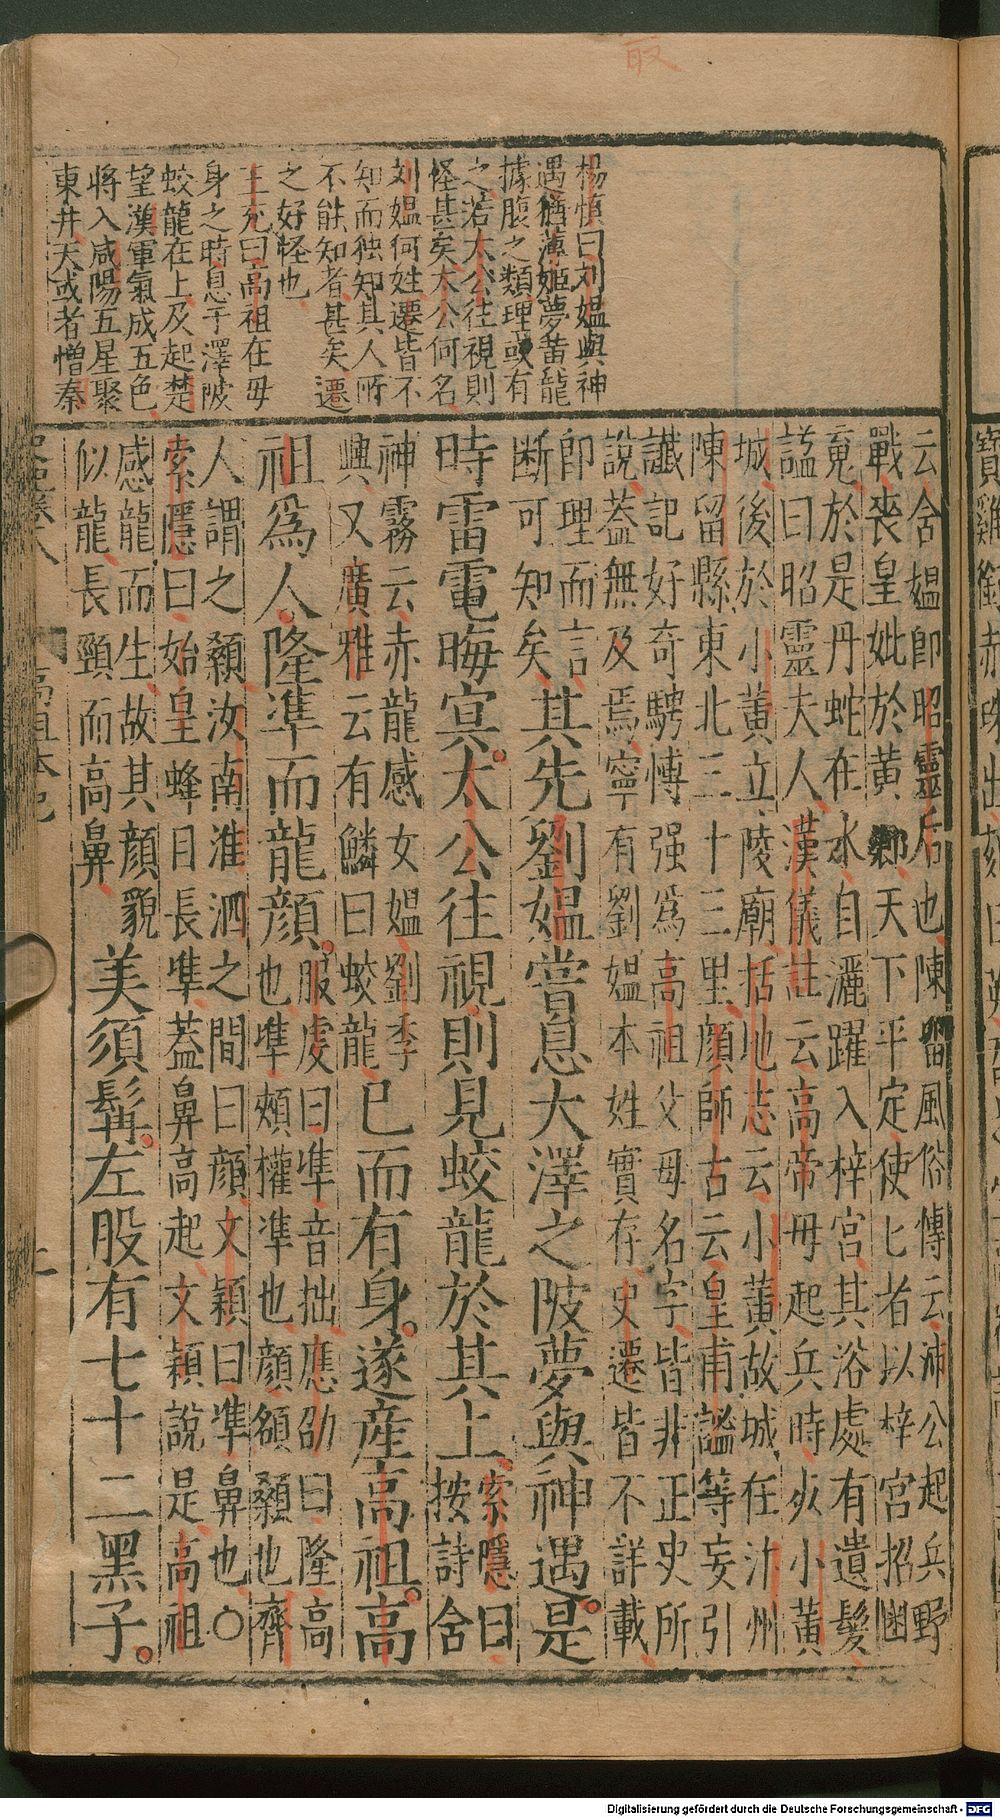 㝡
楊慎曰刘媼與神
遇猶薄姬夢黄龍
據腹之類理或有
之若太公往視則
怪甚矣太公何名
刘媼何姓遷皆不
知而独知其人所
不能知者甚矣遷
之好怪也
王充曰高祖在母
身之時息于澤陂
蛟龍在上及起楚
望漢軍氣成五色
將入咸陽五星聚
東井天或者憎秦
云含媼即昭靈后也陳畱風俗傳云沛公起兵野
戰喪皇妣於黄鄉天下平定使匕者以梓宮招幽
䰟於是丹蛇在水自灑躍入梓宮其浴處有遺髮
諡曰昭靈夫人漢儀註云高帝母起兵時死小黄
城後於小黄立陵廟括地志云小黄故城在汴州
陳留縣東北三十三里顔師古云皇甫謐等妄引
讖記好奇騁愽强為高祖父母名字皆非正史所
說蓋無及焉寧有劉媼本姓實存史遷皆不詳載
即理而言
断可知矣其先劉媼嘗息大澤之陂夢與神遇是
時雷電晦㝠太公往視則見蛟龍於其上索隱曰
按詩含
神霧云赤龍感女媼劉季
興又廣雅云有鱗曰蛟龍已而有身遂産高祖高
祖為人隆準而龍顔服虔曰準音拙應劭曰隆高
也準頰權準也顔額顙也齊
人謂之顙汝南淮泗之間曰顔文穎曰準鼻也○
索隱曰始皇蜂目長準蓋鼻高起文穎說是高祖
感龍而生故其顔貌
似龍長頸而高鼻美須髯左股有七十二黑子
史記卷八 高祖本紀 二
Digitalisierung gefördert durch die Deutsche Forschungsgemeinschaft - DFG